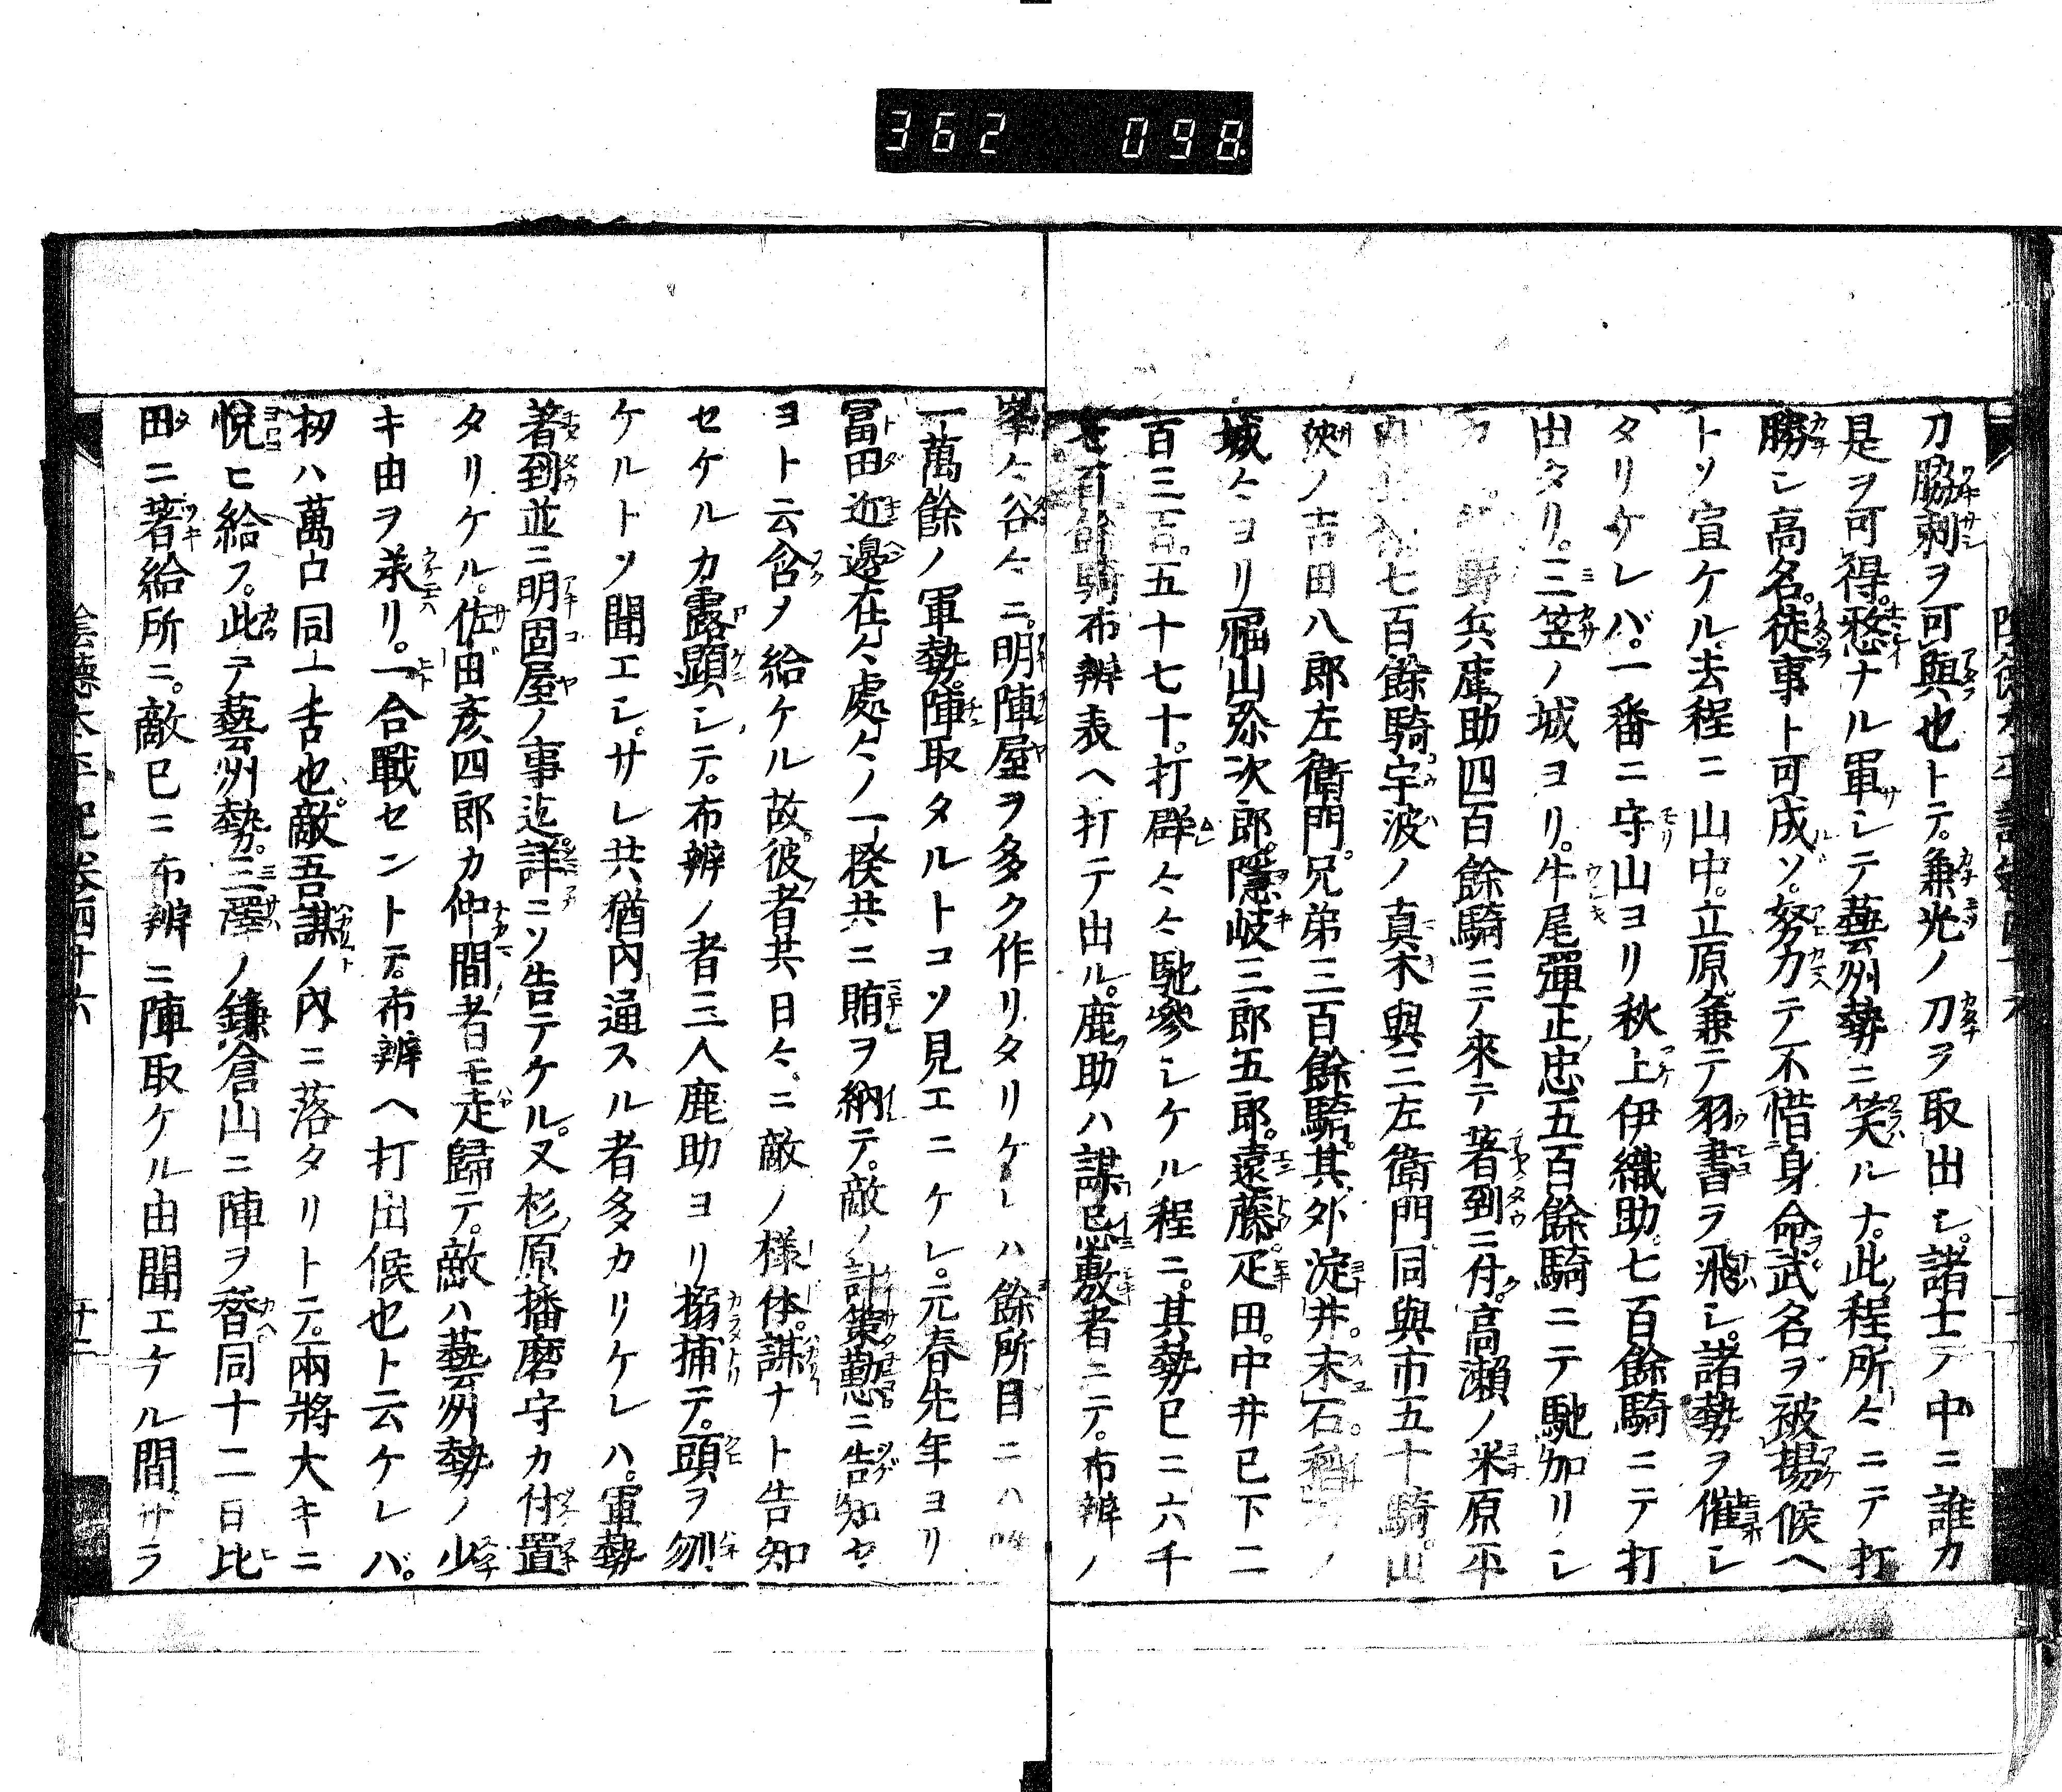 362 098
刀脇刺ヲ可與也トテ。兼光ノ刀ヲ取出シ。諸士ノ中ニ誰カ
是ヲ可得。憖ナル軍シテ藝州勢ニ笑ルナ。此程所々ニテ打
勝シ高名。徒事ト可成ソ。努力テ不惜身命武名ヲ被揚候ヘ
トソ宣ケル。去程ニ山中。立原兼テ羽書ヲ飛シ。諸勢ヲ催シ
タリケレバ。一番ニ守山ヨリ秋上伊織助。七百餘騎ニテ打
出タリ。三笠ノ城ヨリ。牛尾彈正忠五百餘騎ニテ馳加リシ
カ 野兵庫助四百餘騎ニテ來テ著到ニ付。高瀬ノ米原平
内 七百餘騎。宇波ノ真木與三左衛門同與市五十騎。山
狹ノ吉田八郎左衛門。兄弟三百餘騎。其外淀井。末石。 ノ
城々ヨリ福山弥次郎。隱岐三郎五郎。遠藤。疋田。中井已下二
百三百。五十七十。打群々々馳參シケル程ニ。其勢已ニ六千
七百餘騎布辨表ヘ打テ出ル。鹿助ハ謀 敷者ニテ。布辨ノ
峯々谷々ニ。明陣屋ヲ多ク作リタリケレハ餘所目ニハ
一萬餘ノ軍勢。陣取タルトコソ見エニケレ。元春先年ヨリ
冨田近邊在々處々ノ一揆共ニ賄ヲ納テ。敵ノ計策懃ニ告知セ
ヨト云含メ給ケル故。彼者共日々ニ敵ノ樣体。謀ナト告知
セケルカ露顕シテ。布辨ノ者三人鹿助ヨリ搦捕テ。頭ヲ刎
ケルトソ聞エシ。サレ共猶内通スル者多カリケレハ。軍勢
著到並ニ明固屋ノ事迄。詳ニソ告テケル。又杉原播磨守カ付置
タリケル。佐田彦四郎カ仲間者モ走歸テ。敵ハ藝州勢ノ少
キ由ヲ承リ。一合戰セントテ。布辨ヘ打出候也ト云ケレバ。
扨ハ萬口同一舌也。敵吾謀ノ内ニ落タリトテ。兩將大キニ
悦ヒ給フ。此テ藝州勢。三澤ノ鎌倉山ニ陣ヲ替同十二日比
田ニ著給所ニ。敵已ニ布辨ニ陣取ケル由聞エケル間サラ
陰德太平記卷四十六 十二